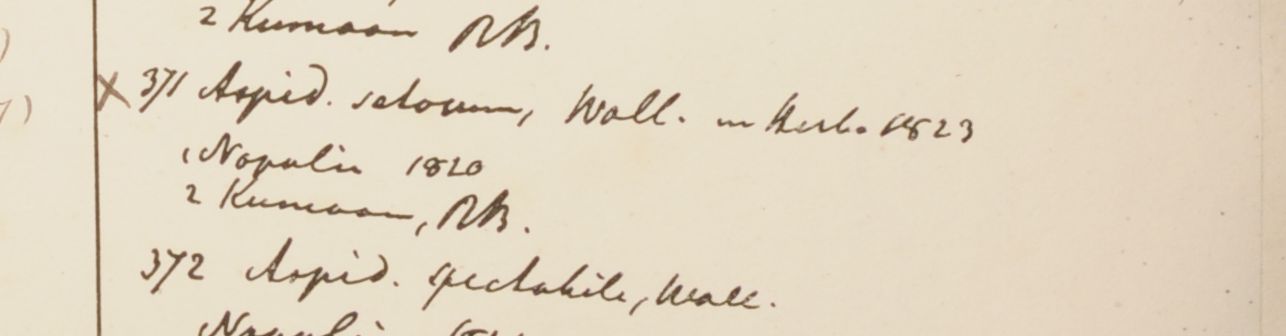 2 Kumaon RB.
X 371 Aspid. setosum, Wall. in Herb. 1823
1 Napalia 1820
2 Kumaon, RB.
372 Aspid. spectabile, Wall.
Napalia